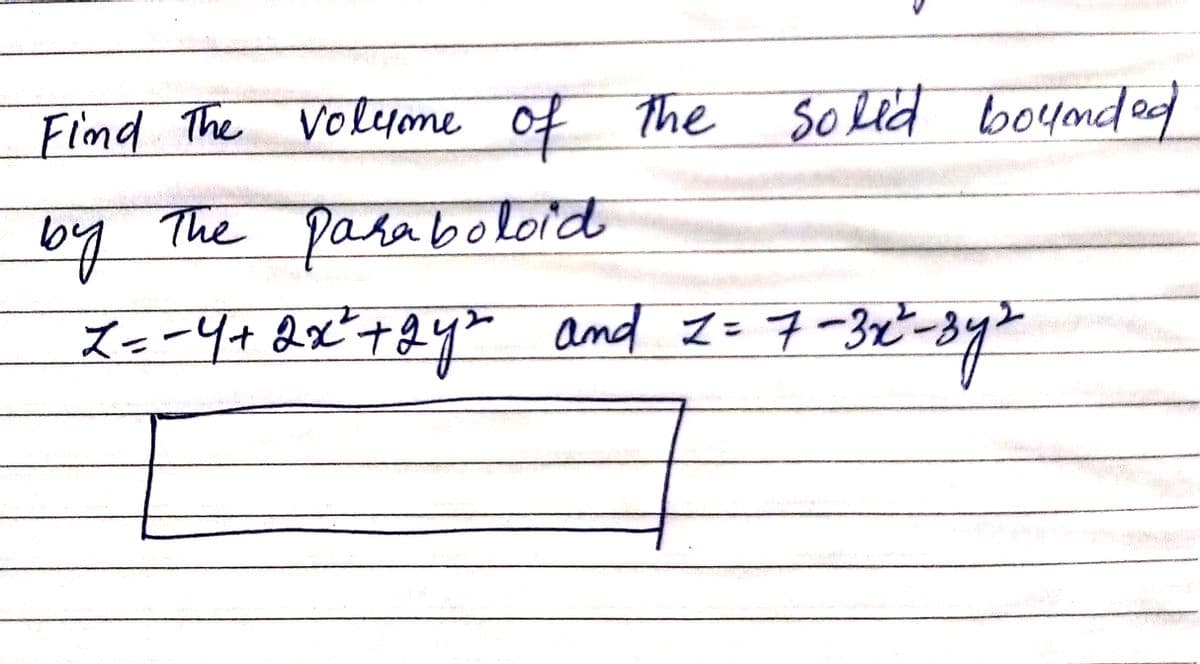 Find The volume of The solid bounded
by The paraboloid
z = -4 + 2x² + 2y² and z = 7 - 3x² - 3y²